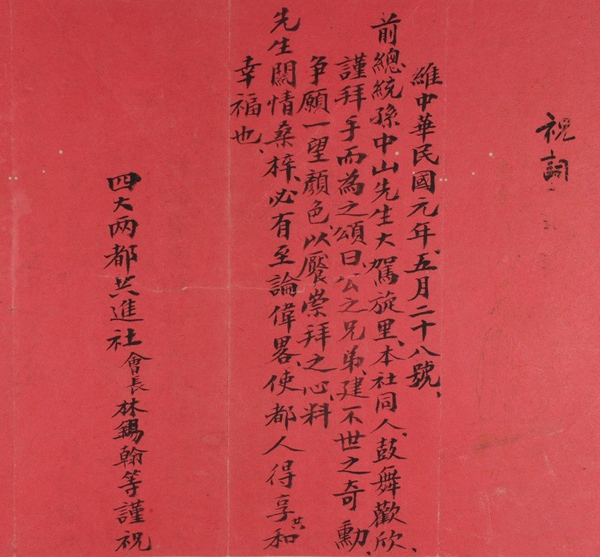 祝詞
維中華民國元年、五月二十八號、
前總統孫中山先生大駕旋里、本社同人、鼓舞歡欣、
謹拜手而為之頌曰、公之兄弟、建不世之奇勳、
爭願一望顏色、以饜崇拜之心、料
先生關情桑梓、必有至論偉畧、使都人得享共和
幸福也、
四大兩都共進社會長林錫翰等謹祝